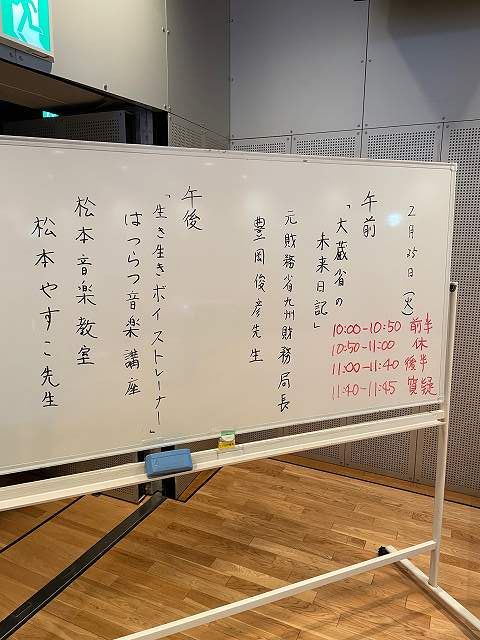 2月25日(火)
10:00-10:50 前半
10:50-11:00 休
11:00-11:40 後半
11:40-11:45 質疑
午前
「大蔵省の
未来日記」
元財務省九州財務局長
豊岡俊彦先生
午後
「生き生きボイストレーナー」
はつらつ音楽講座
松本音楽教室
松本やすこ先生